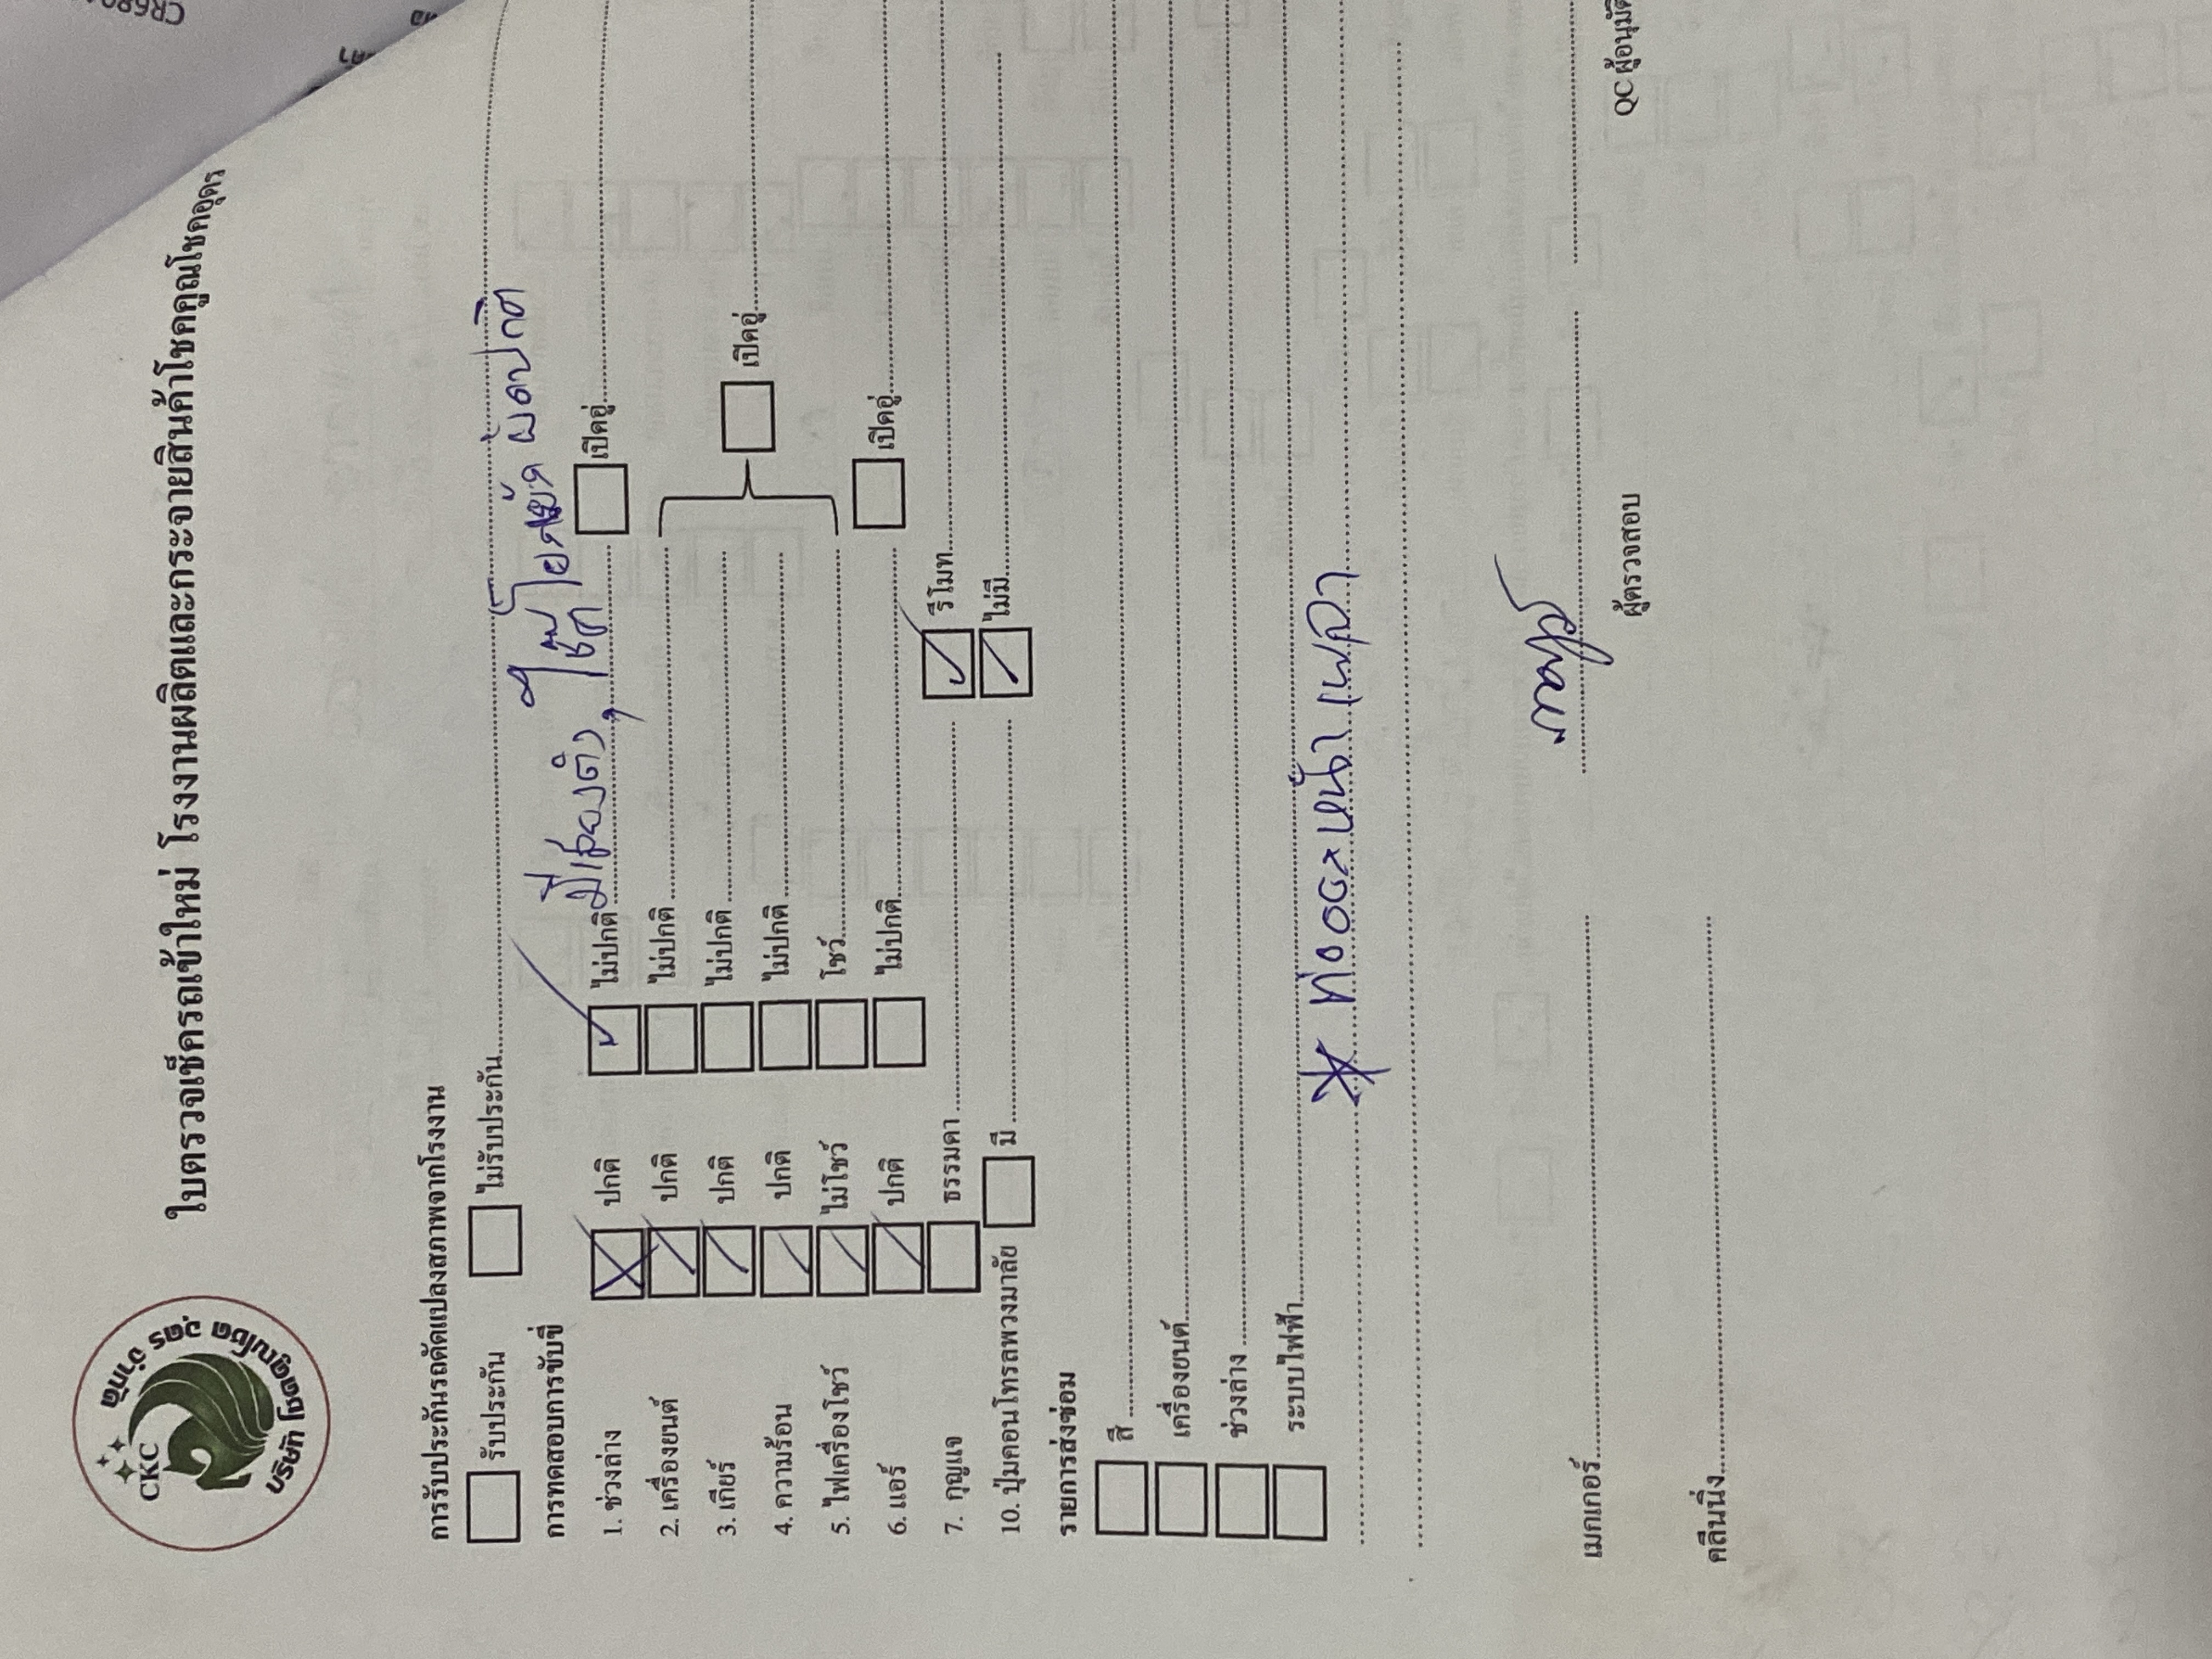 CKC
บริษัท คูณโชคอุดร จำกัด
ใบตรวจเช็ครถเข้าใหม่ โรงงานผลิตและกระจายสินค้าโชคคูณโชคอุดร
การรับประกันรถดัดแปลงสภาพจากโรงงาน
รับประกัน ไม่รับประกัน
การทดสอบการขับขี่
มีเสียงดัง, โช๊ค ผิดปกติ
1. ช่วงล่าง ปกติ ไม่ปกติ เปิดอู่
2. เครื่องยนต์ ปกติ ไม่ปกติ
3. เกียร์ ปกติ ไม่ปกติ เปิดอู่
4. ความร้อน ปกติ ไม่ปกติ
5. ไฟเครื่องโชว์ ไม่โชว์ โชว์
6. แอร์ ปกติ ไม่ปกติ เปิดอู่
7. กุญแจ ธรรมดา รีโมท
10. ปุ่มคอนโทรลพวงมาลัย มี ไม่มี
รายการส่งซ่อม
สี
เครื่องยนต์
ช่วงล่าง
ระบบไฟฟ้า
เมกเกอร์ ผู้ตรวจสอบ QC ผู้อนุมัติ
คลีนนิ่ง